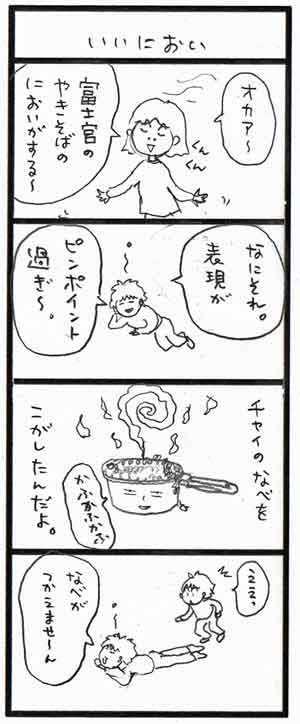 いいにおい
オカア〜
くんくん
富士宮の
やきそばの
においがする〜
なにそれ。
表現が
ピンポイント
過ぎ〜。
チャイのなべを
こがしたんだよ。
かふかふかふ
ええっ
なべが
つかえませ〜ん